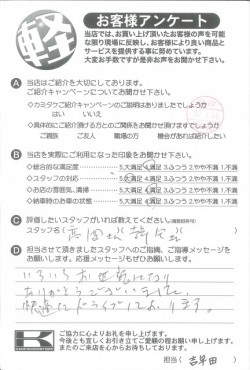 軽
お客様アンケート
当店では、お買い上げ頂いたお客様の声を可能
な限り現場に反映し、お客様により良い商品と
サービスを提供する事に努めています。
大変お手数ですが是非お声をお聞かせ下さい。
A 当店はご紹介を大切にしております。
ご紹介キャンペーンについてお聞かせ下さい
◇カミタケご紹介キャンペーンのご説明はありましたでしょうか
はい いいえ
◇具体的にご紹介頂ける方とのご関係をお聞かせ頂けますでしょうか
ご親族 ご友人 職場の方 機会があれば紹介したい
B 当店を実際にご利用になった印象をお聞かせ下さい。
◇総合的な満足度 5.大満足 4.満足 3.ふつう 2.やや不満 1.不満
◇スタッフの対応 5.大満足 4.満足 3.ふつう 2.やや不満 1.不満
◇お店の雰囲気、清掃 5.大満足 4.満足 3.ふつう 2.やや不満 1.不満
◇納車時のお車の状態 5.大満足 4.満足 3.ふつう 2.やや不満 1.不満
C 評価したいスタッフがいれば教えてください。(複数回答可)
スタッフ名
D 担当させて頂きましたスタッフへのご指摘、ご指導メッセージを
お願いします。応援メッセージもぜひお願いします。
いろいろお世話になり
ありがとうございました。
快適にドライブしております。
K
ご協力に心よりお礼を申し上げます。
今後とも宜しくお引き立てご愛顧の程お願い申し上げます。
またのご来店を心からお待ちしております。
担当( 吉早田 )